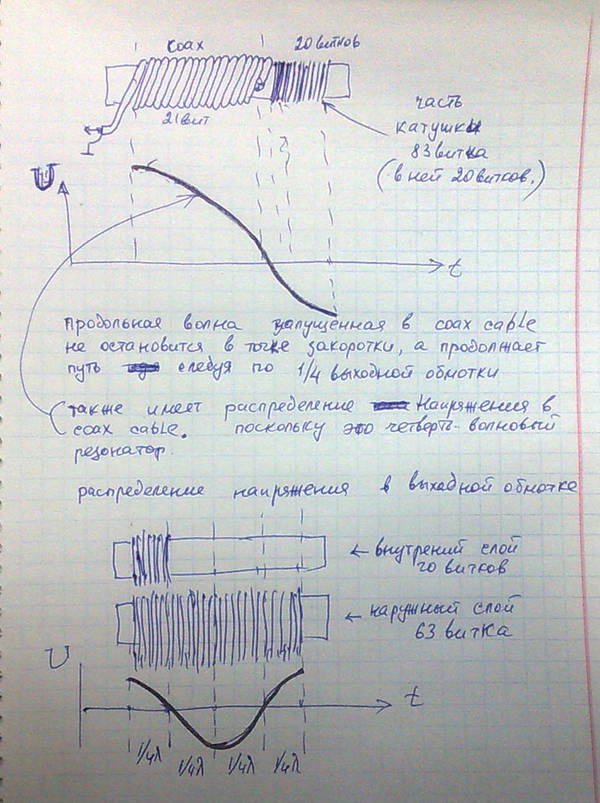 coax
20 витков
21 вит
часть
катушки
83 витка
(в ней 20 витков.)
U
t
продольная волна запущенная в coax cable
не остановится в точке закоротки, а продолжает
путь следуя по 1/4 выходной обмотки
также имеет распределение напряжения в
coax cable. поскольку это четверть-волновый
резонатор.
распределение напряжения в выходной обмотке
← внутрений слой
20 витков
← наружный слой
63 витка
U
t
1/4λ 1/4λ 1/4λ 1/4λ